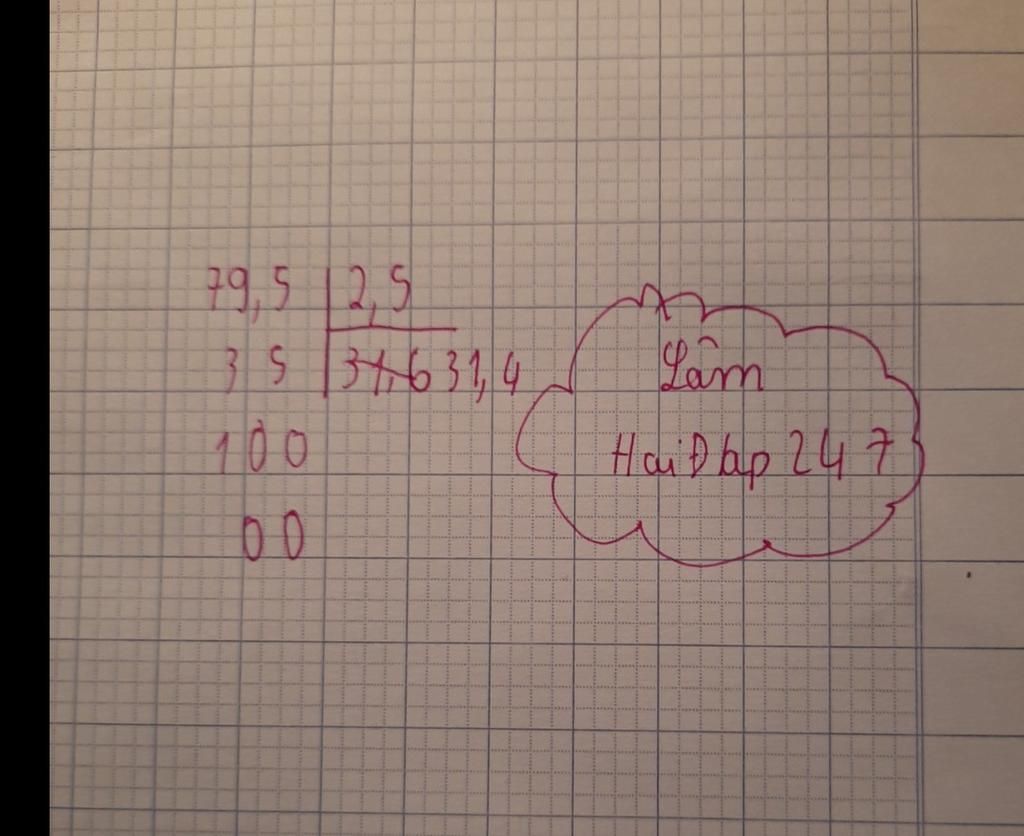 79,5 2,5
3 5 31,6 31,4
100
00
Lâm
HoiĐap 247